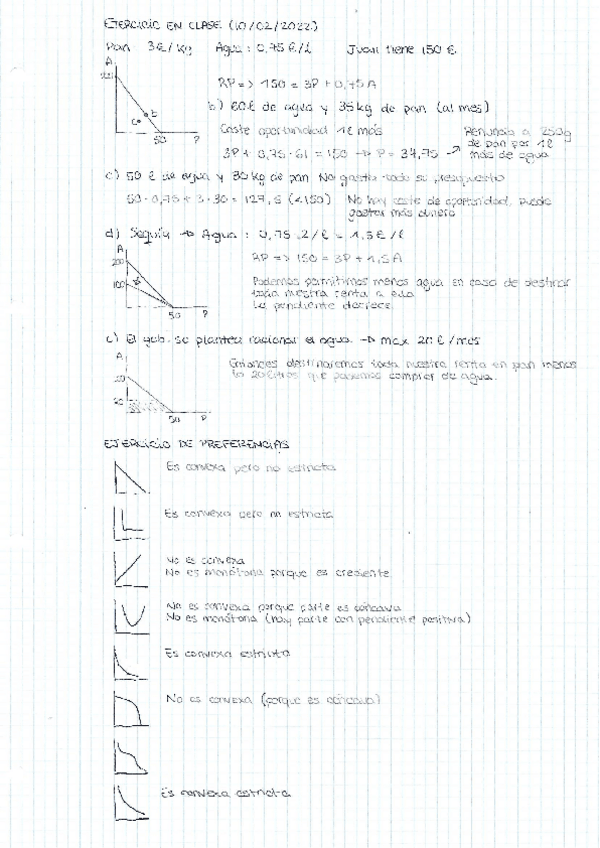 EJERCICIO EN CLASE (10/02/2022)
Pan 3€/kg Agua: 0,75 €/L Juan tiene 150 €
A
50 P
RP => 150 = 3P + 0,75A
b) 60 L de agua y 35 kg de pan (al mes)
Coste oportunidad 1L más
3P + 0,75 · 61 = 150 → P = 34,75 →
Renuncia a 250g
de pan por 1L
más de agua
c) 50 L de agua y 30 kg de pan No gasta todo su presupuesto
50 · 0,75 + 3 · 30 = 127,5 (<150) No hay coste de oportunidad, puede
gastar más dinero
d) Sequía → Agua: 0,75 · 2/L = 1,5€/L
A
200
100
50 P
RP => 150 = 3P + 1,5A
Podemos permitirnos menos agua en caso de destinar
toda nuestra renta a ella
La pendiente decrece
El gob. se plantea racionar el agua → max 20 L/mes
A
20
50 P
Entonces destinaremos toda nuestra renta en pan menos
los 20 litros que podemos comprar de agua.
EJERCICIO DE PREFERENCIAS
Es convexa pero no estricta
Es convexa pero no estricta
No es convexa
No es monótona porque es creciente
No es convexa porque parte es cóncava
No es monótona (hay parte con pendiente positiva)
Es convexa estricta
No es convexa (porque es cóncava)
Es convexa estricta